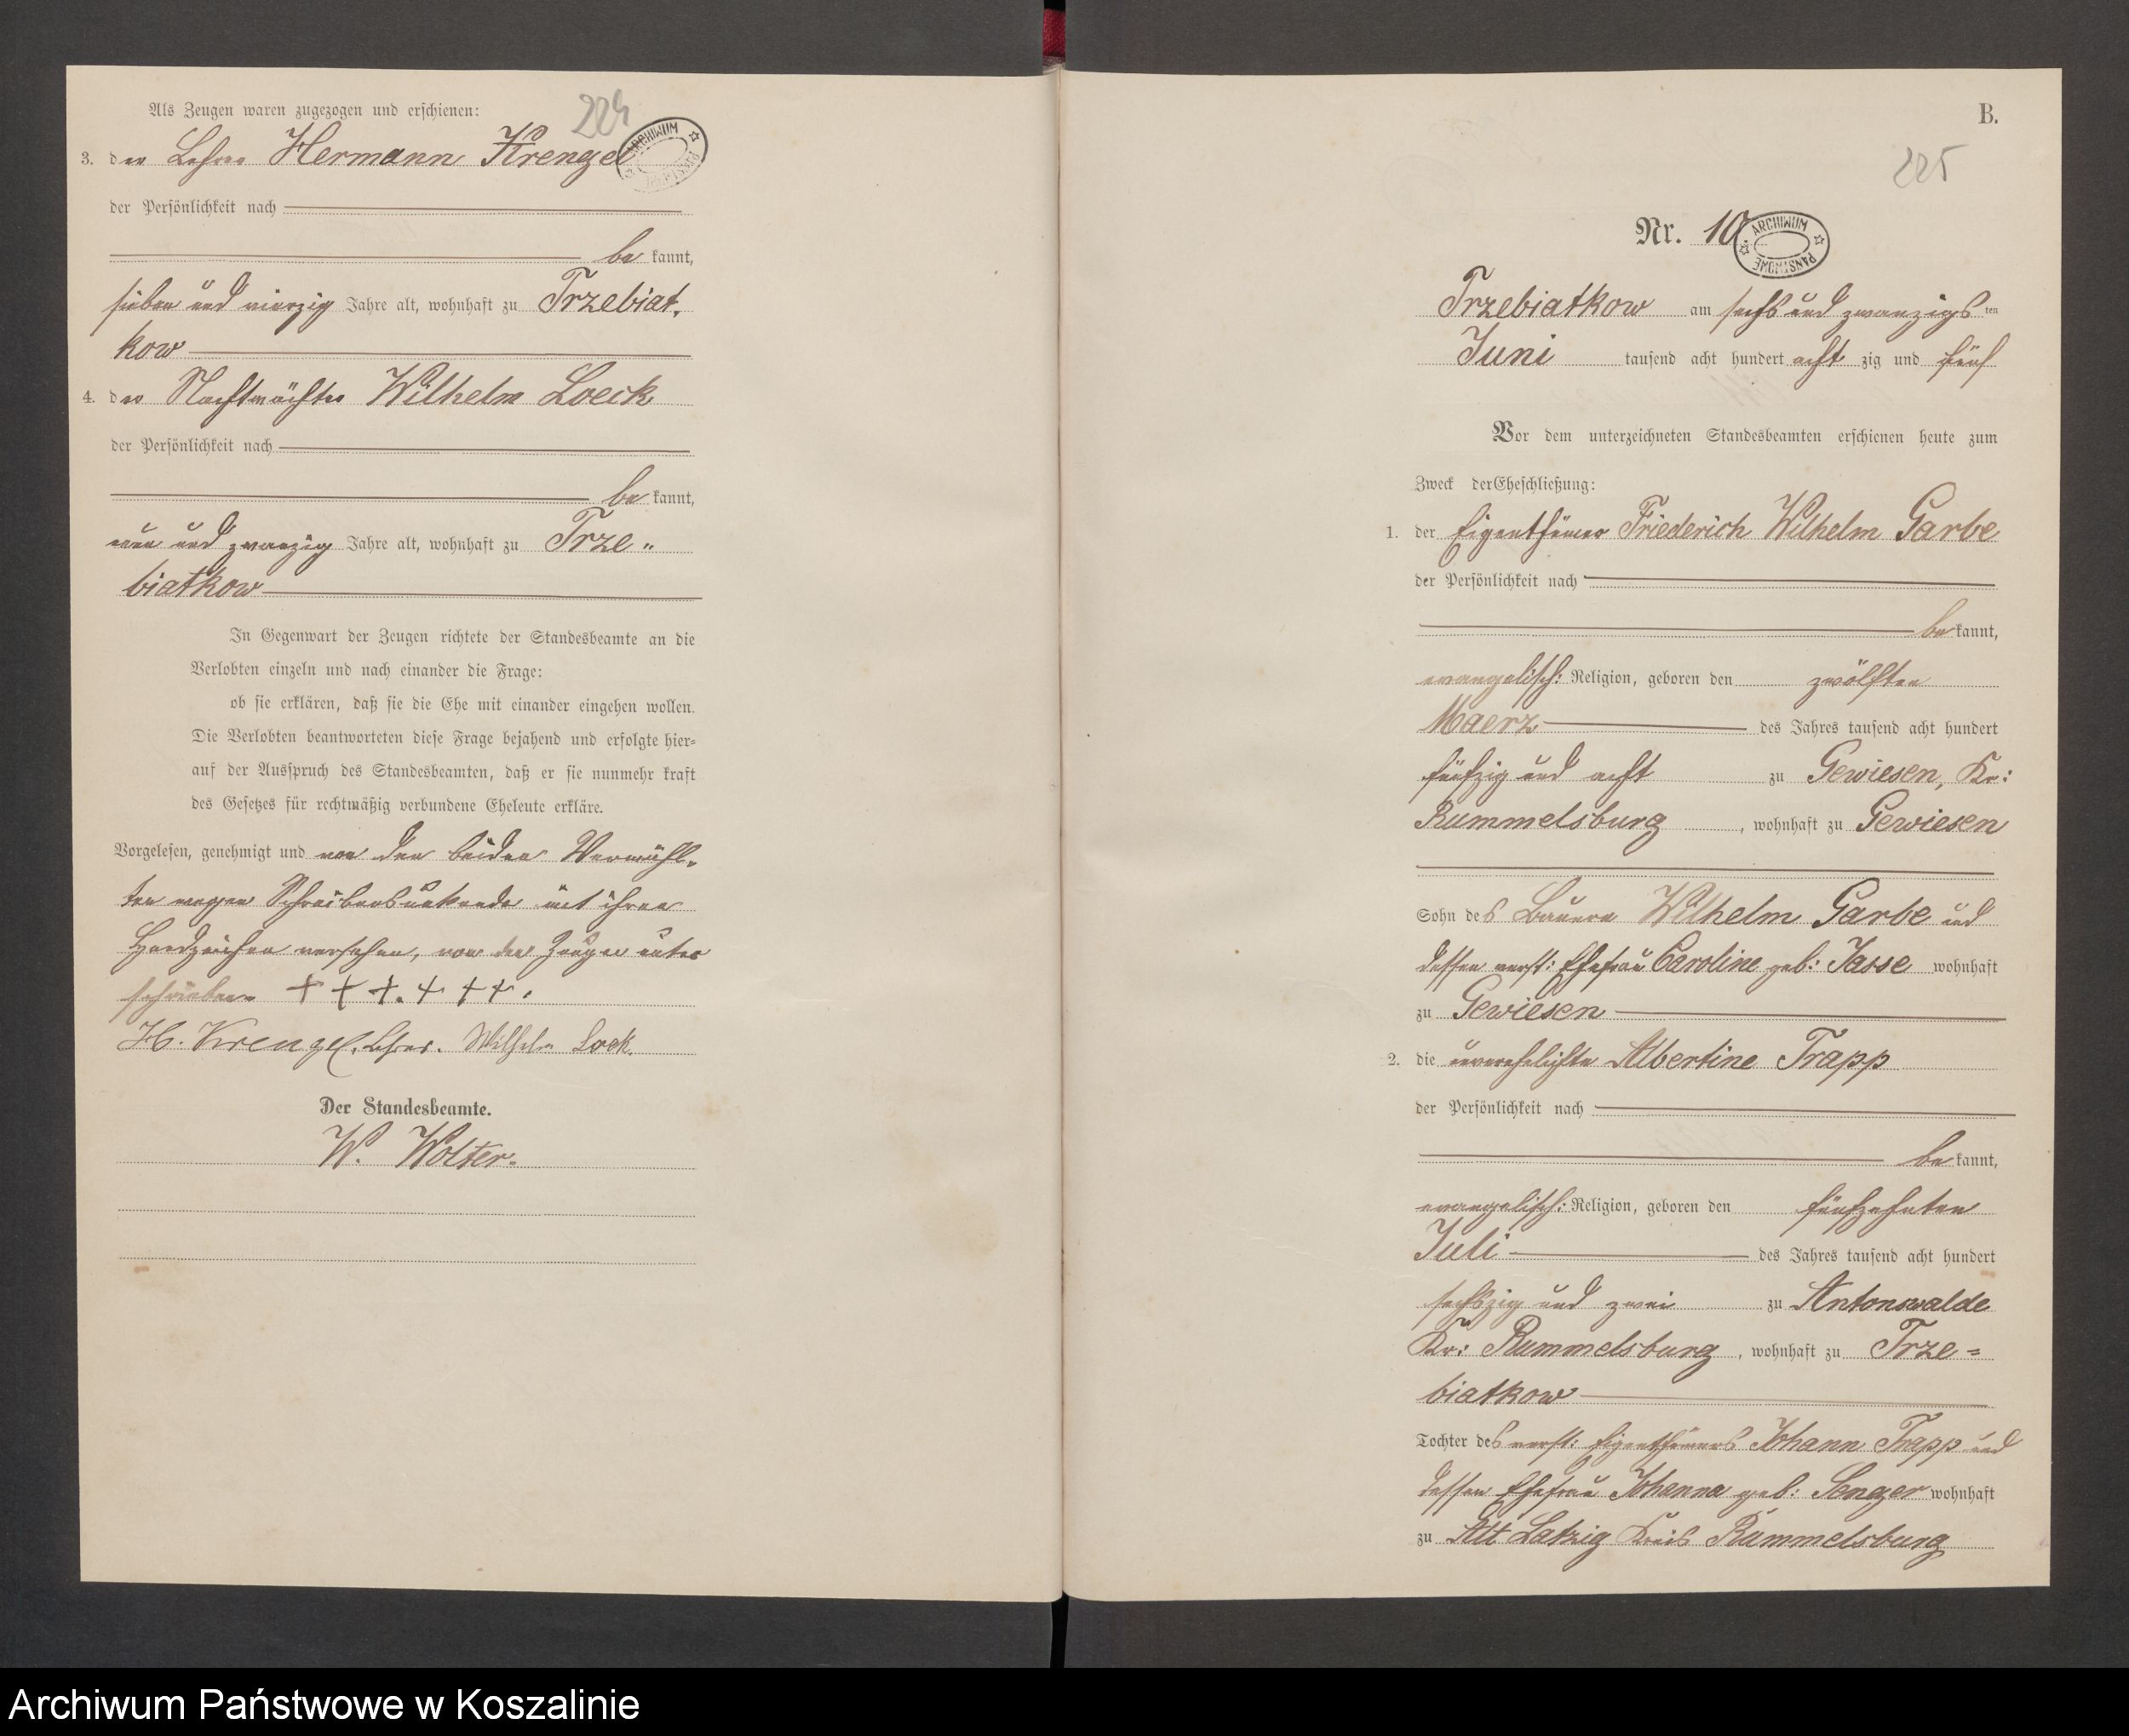 224
Als Zeugen waren zugezogen und erschienen:
3. der Lehrer Hermann Krengel
ARCHIWUM PAŃSTWOWE
der Persönlichkeit nach
be kannt,
sieben und vierzig Jahre alt, wohnhaft zu Trzebiat-
kow
4. der Nachtwächter Wilhelm Loeck
der Persönlichkeit nach
be kannt,
neun und zwanzig Jahre alt, wohnhaft zu Trze-
biatkow
In Gegenwart der Zeugen richtete der Standesbeamte an die
Verlobten einzeln und nach einander die Frage:
ob sie erklären, daß sie die Ehe mit einander eingehen wollen.
Die Verlobten beantworteten diese Frage bejahend und erfolgte hier-
auf der Ausspruch des Standesbeamten, daß er sie nunmehr kraft
des Gesetzes für rechtmäßig verbundene Eheleute erkläre.
Vorgelesen, genehmigt und von den beiden Vermähl-
ten wegen Schreibensunkunde mit ihren
Handzeichen versehen, von den Zeugen unter
schrieben + + +. + + +.
H. Krengel, Lehrer. Wilhelm Loek.
Der Standesbeamte.
W. Wolter.
B.
225
Nr. 10.
ARCHIWUM PAŃSTWOWE
Trzebiatkow am sechs und zwanzigs ten
Juni tausend acht hundert acht zig und fünf
Vor dem unterzeichneten Standesbeamten erschienen heute zum
Zweck der Eheschließung:
1. der Eigenthümer Friederich Wilhelm Garbe
der Persönlichkeit nach
be kannt,
evangelisch: Religion, geboren den zwölften
Maerz des Jahres tausend acht hundert
fünfzig und acht zu Gewiesen, Kr:
Rummelsburg, wohnhaft zu Gewiesen
Sohn des Bauern Wilhelm Garbe und
dessen verst: Ehefrau Caroline geb: Jasse wohnhaft
zu Gewiesen
2. die unverehelichte Albertine Trapp
der Persönlichkeit nach
be kannt,
evangelisch: Religion, geboren den fünfzehnten
Juli des Jahres tausend acht hundert
sechszig und zwei zu Antonswalde
Kr: Rummelsburg, wohnhaft zu Trze=
biatkow
Tochter des verst: Eigenthümers Johann Trapp und
dessen Ehefrau Johanna geb: Senger wohnhaft
zu Alt Latzig Kreis Rummelsburg
Archiwum Państwowe w Koszalinie